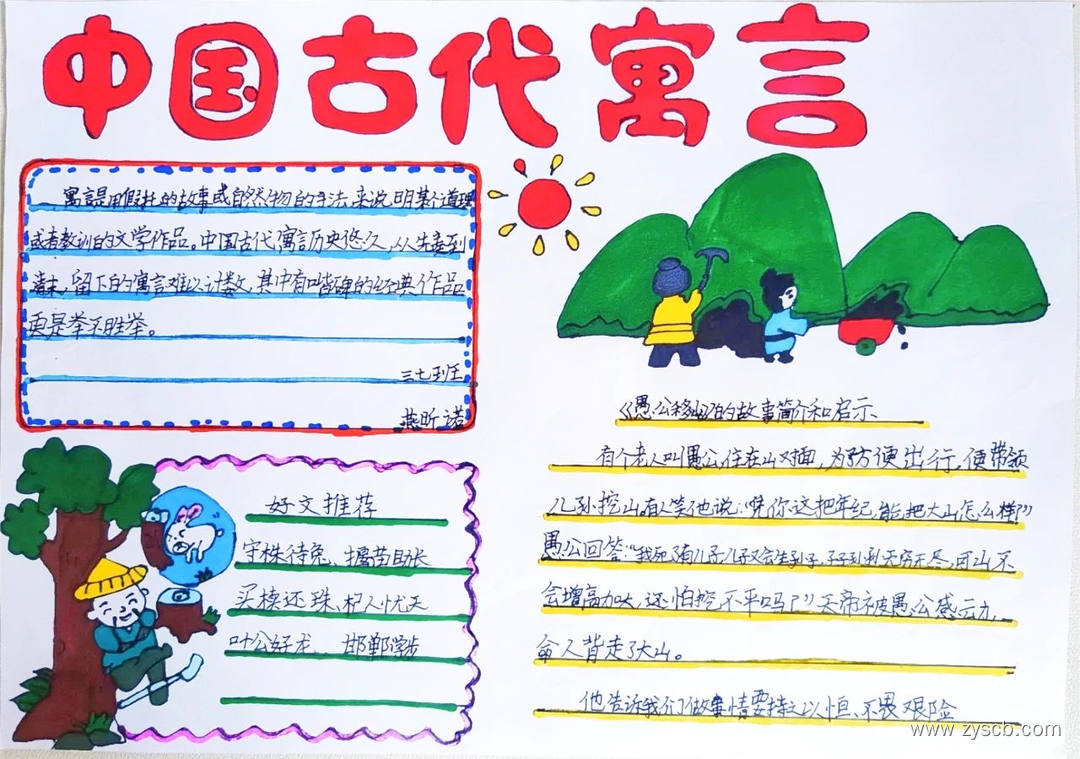 中国古代寓言
寓言是用假托的故事或自然物的手法来说明某个道理
或者教训的文学作品。中国古代寓言历史悠久,从先秦到
清末,留下的寓言难以计数,其中有口皆碑的经典作品
更是举不胜举。
三七班
燕昕诺
好文推荐
守株待兔、揠苗助长
买椟还珠、杞人忧天
叶公好龙、邯郸学步
《愚公移山》的故事简介和启示
有个老人叫愚公,住在山对面,为了方便出行,便带领
儿孙挖山,有人笑他说:"凭你这把年纪,能把大山怎么样?"
愚公回答:"我死了有儿子,儿子又会生孙子,子子孙孙无穷无尽,可山不
会增高加大,还怕挖不平吗?"天帝被愚公感动,
命人背走了大山。
他告诉我们做事情要持之以恒、不畏艰险
www.zyscb.com